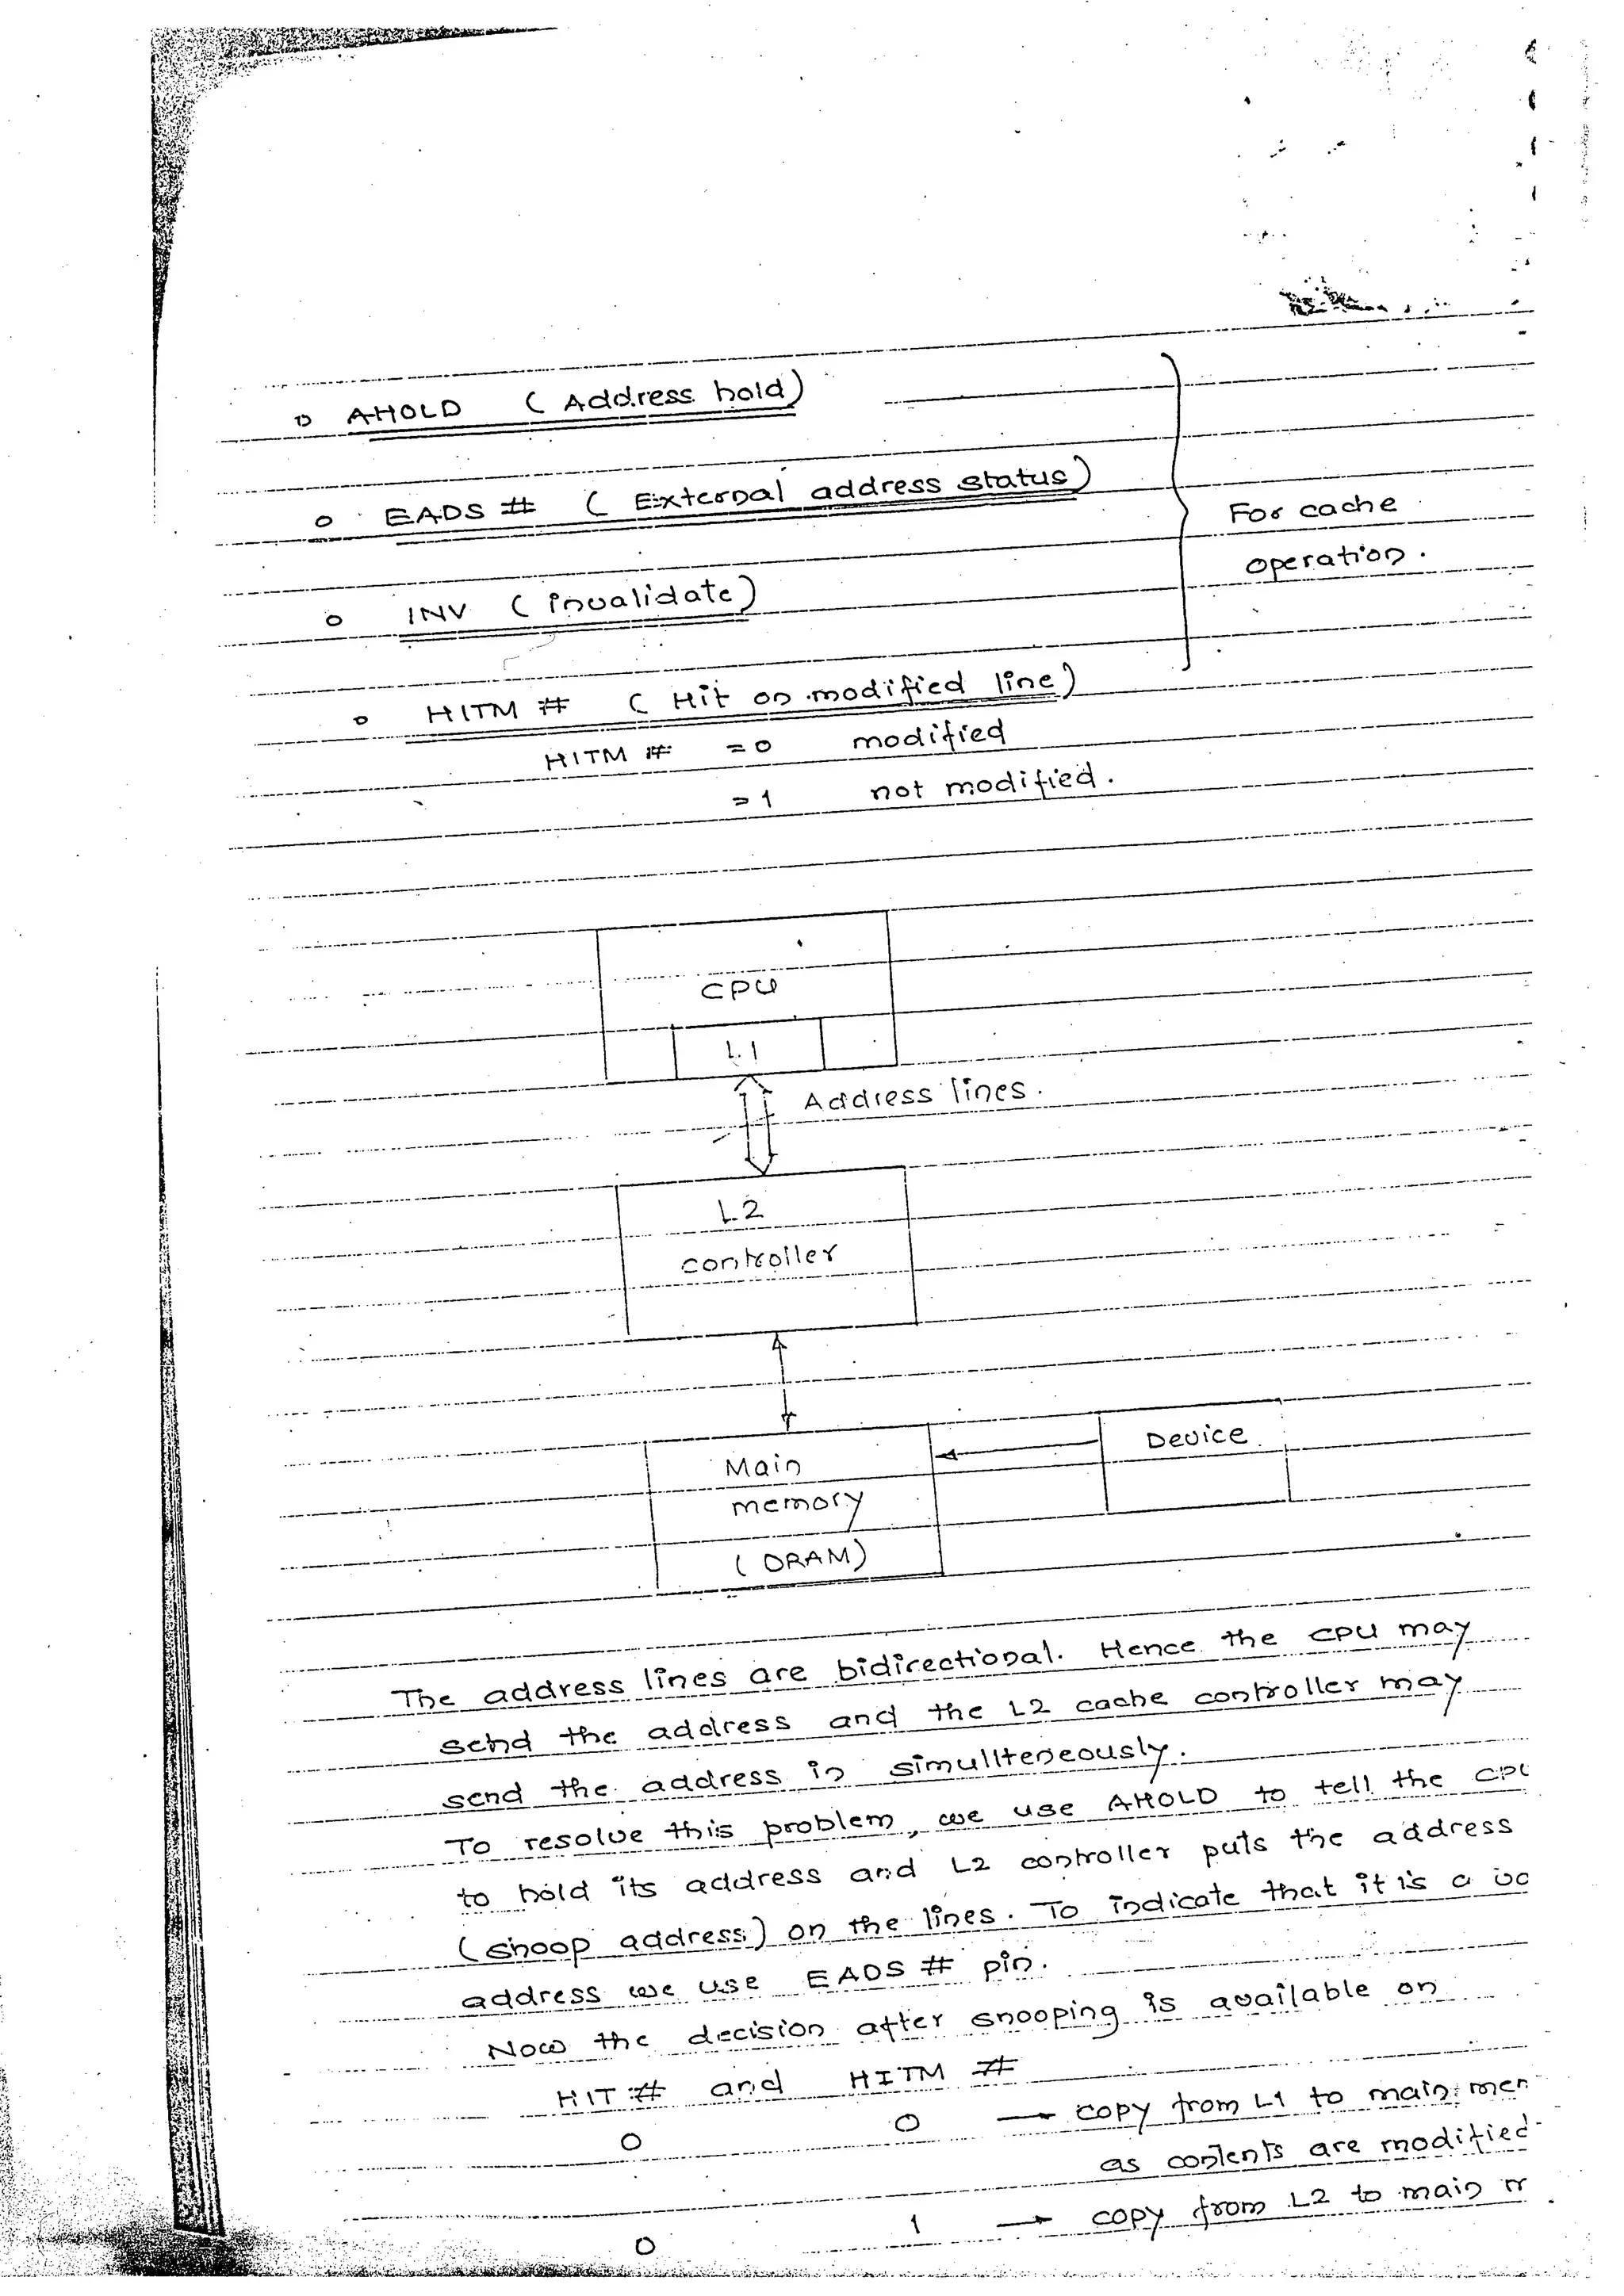 AHOLD ( Address hold)
EADS # ( External address status)
For cache
operation.
INV ( invalidate)
HITM # ( Hit on modified line)
HITM # = 0 modified
= 1 not modified.
CPU
L1
Address lines.
L2
controller
Device
Main
memory
( DRAM)
The address lines are bidirectional. Hence the CPU may
send the address and the L2 cache controller may
send the address in simullteneously.
To resolve this problem, we use AHOLD to tell the
to hold its address and L2 controller puts the address
(snoop address) on the lines. To indicate that it is a
address we use EADS # pin.
Now the decision after snooping is available on
HIT # and HITM #
0 0 → copy from L1 to main
as contents are modified
0 1 → copy from L2 to main